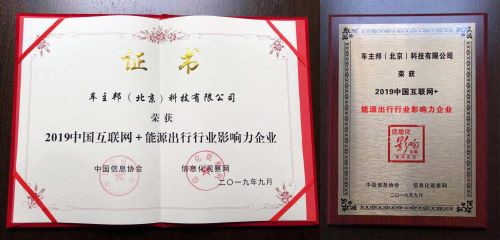 证书
车主邦（北京）科技有限公司
荣获
2019中国互联网+能源出行行业影响力企业
中国信息协会 信息化观察网
二〇一九年九月
车主邦（北京）科技有限公司
荣获
2019中国互联网+
能源出行行业影响力企业
信息化
影响
中国信息协会 信息化观察网
二〇一九年九月